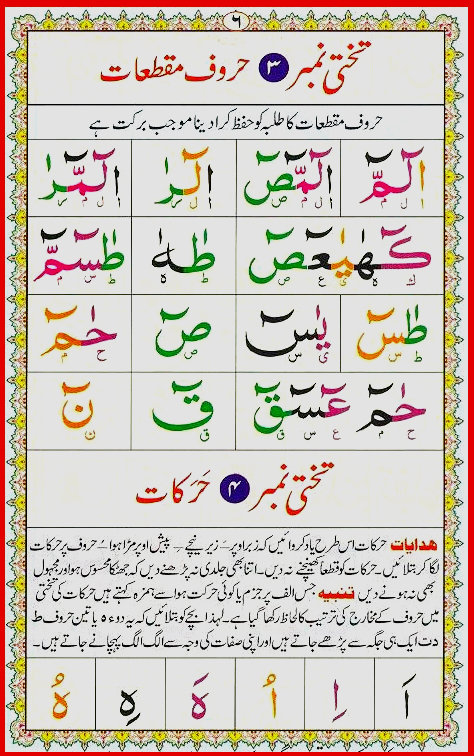 ٦
تختی نمبر ٣ حروف مقطعات
حروف مقطعات کا طلبہ کو حفظ کرا دینا موجب برکت ہے
الٓمّٓ الٓمّٓصٓ الٓرٰ الٓمّٓرٰ
ا ل م ا ل م ص ا ل ر ا ل م ر
كٓهٰيٰعٓصٓ طٰهٰ طٰسٓمّٓ
ك ه ی ع ص ط ه ط س م
طٰسٓ يٰسٓ صٓ حٰمٓ
ط س ی س ص ح م
حٰمٓ عٓسٓقٓ قٓ نٓ
ح م ع س ق ق ن
تختی نمبر ٤ حَرَکات
ھدایات حرکات اس طرح یاد کروائیں کہ زبر اوپر ـَ زیر نیچے ـِ پیش اوپر مڑا ہوا ـُ حروف پر حرکات
لگا کر بتلائیں۔ حرکات کو قطعاً کھینچنے نہ دیں۔ اتنا بھی جلدی نہ پڑھنے دیں کہ جھٹکا محسوس ہو اور مجہول
بھی نہ ہونے دیں تنبیہ جس الف پر جزم یا کوئی حرکت ہو اسے ہمزہ کہتے ہیں حرکات کی تختی
میں حروف کے مخارج کی ترتیب کا لحاظ رکھا گیا ہے۔ لہذا بچے کو بتلائیں کہ یہ دو ء ہ یا تین حروف ط
د ت ایک ہی جگہ سے پڑھے جاتے ہیں اور اپنی صفات کی وجہ سے الگ الگ پہچانے جاتے ہیں۔
اَ اِ اُ هَ هِ هُ